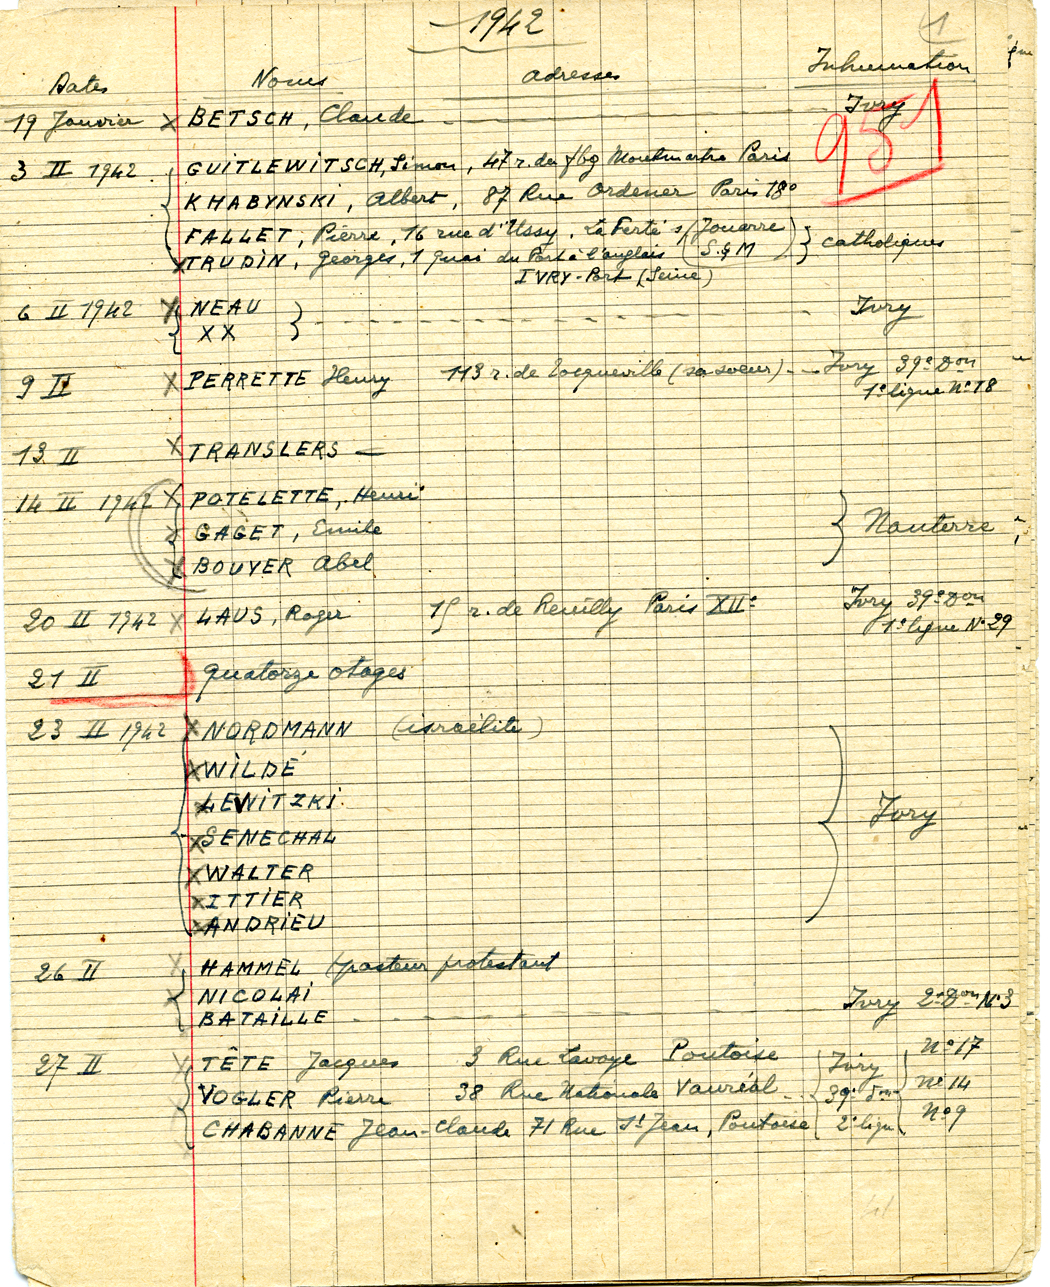 1942
1
Dates Noms adresses Inhumation
19 Janvier x BETSCH, Claude Ivry
951
3 II 1942 GUITLEWITSCH, Simon, 47 r. du fbg Montmartre Paris
KHABYNSKI, Albert, 87 Rue Ordener Paris 18e
FALLET, Pierre, 16 rue d'Ussy, La Ferté s/ Jouarre
(S. & M) } catholiques
x TRUDIN, Georges, 1 Quai du Port à l'anglais
IVRY-Port (Seine)
6 II 1942 x NEAU Ivry
XX
9 II x PERRETTE Henry 113 r. de Tocqueville (sa soeur) Ivry 39e Don
1e ligne N° 18
13 II x TRANSLERS —
14 II 1942 x POTELETTE, Henri
x GAGET, Emile Nanterre
x BOUYER Abel
20 II 1942 x LAUS, Roger 15 r. de Reuilly Paris XIIe Ivry 39e Don
1e ligne N° 29
21 II quatorze otages
23 II 1942 x NORDMANN (israélite)
x WILDÉ
x LEWITZKI
x SENECHAL Ivry
x WALTER
x ITTIER
x ANDRIEU
26 II x HAMMEL (pasteur protestant
x NICOLAI
BATAILLE Ivry 2e Don N° 3
27 II x TÊTE Jacques 3 Rue Lavoye Pontoise Ivry N° 17
VOGLER Pierre 38 Rue Nationale Vauréal 39e Don N° 14
CHABANNE Jean-Claude 71 Rue St Jean, Pontoise 2e lign N° 9